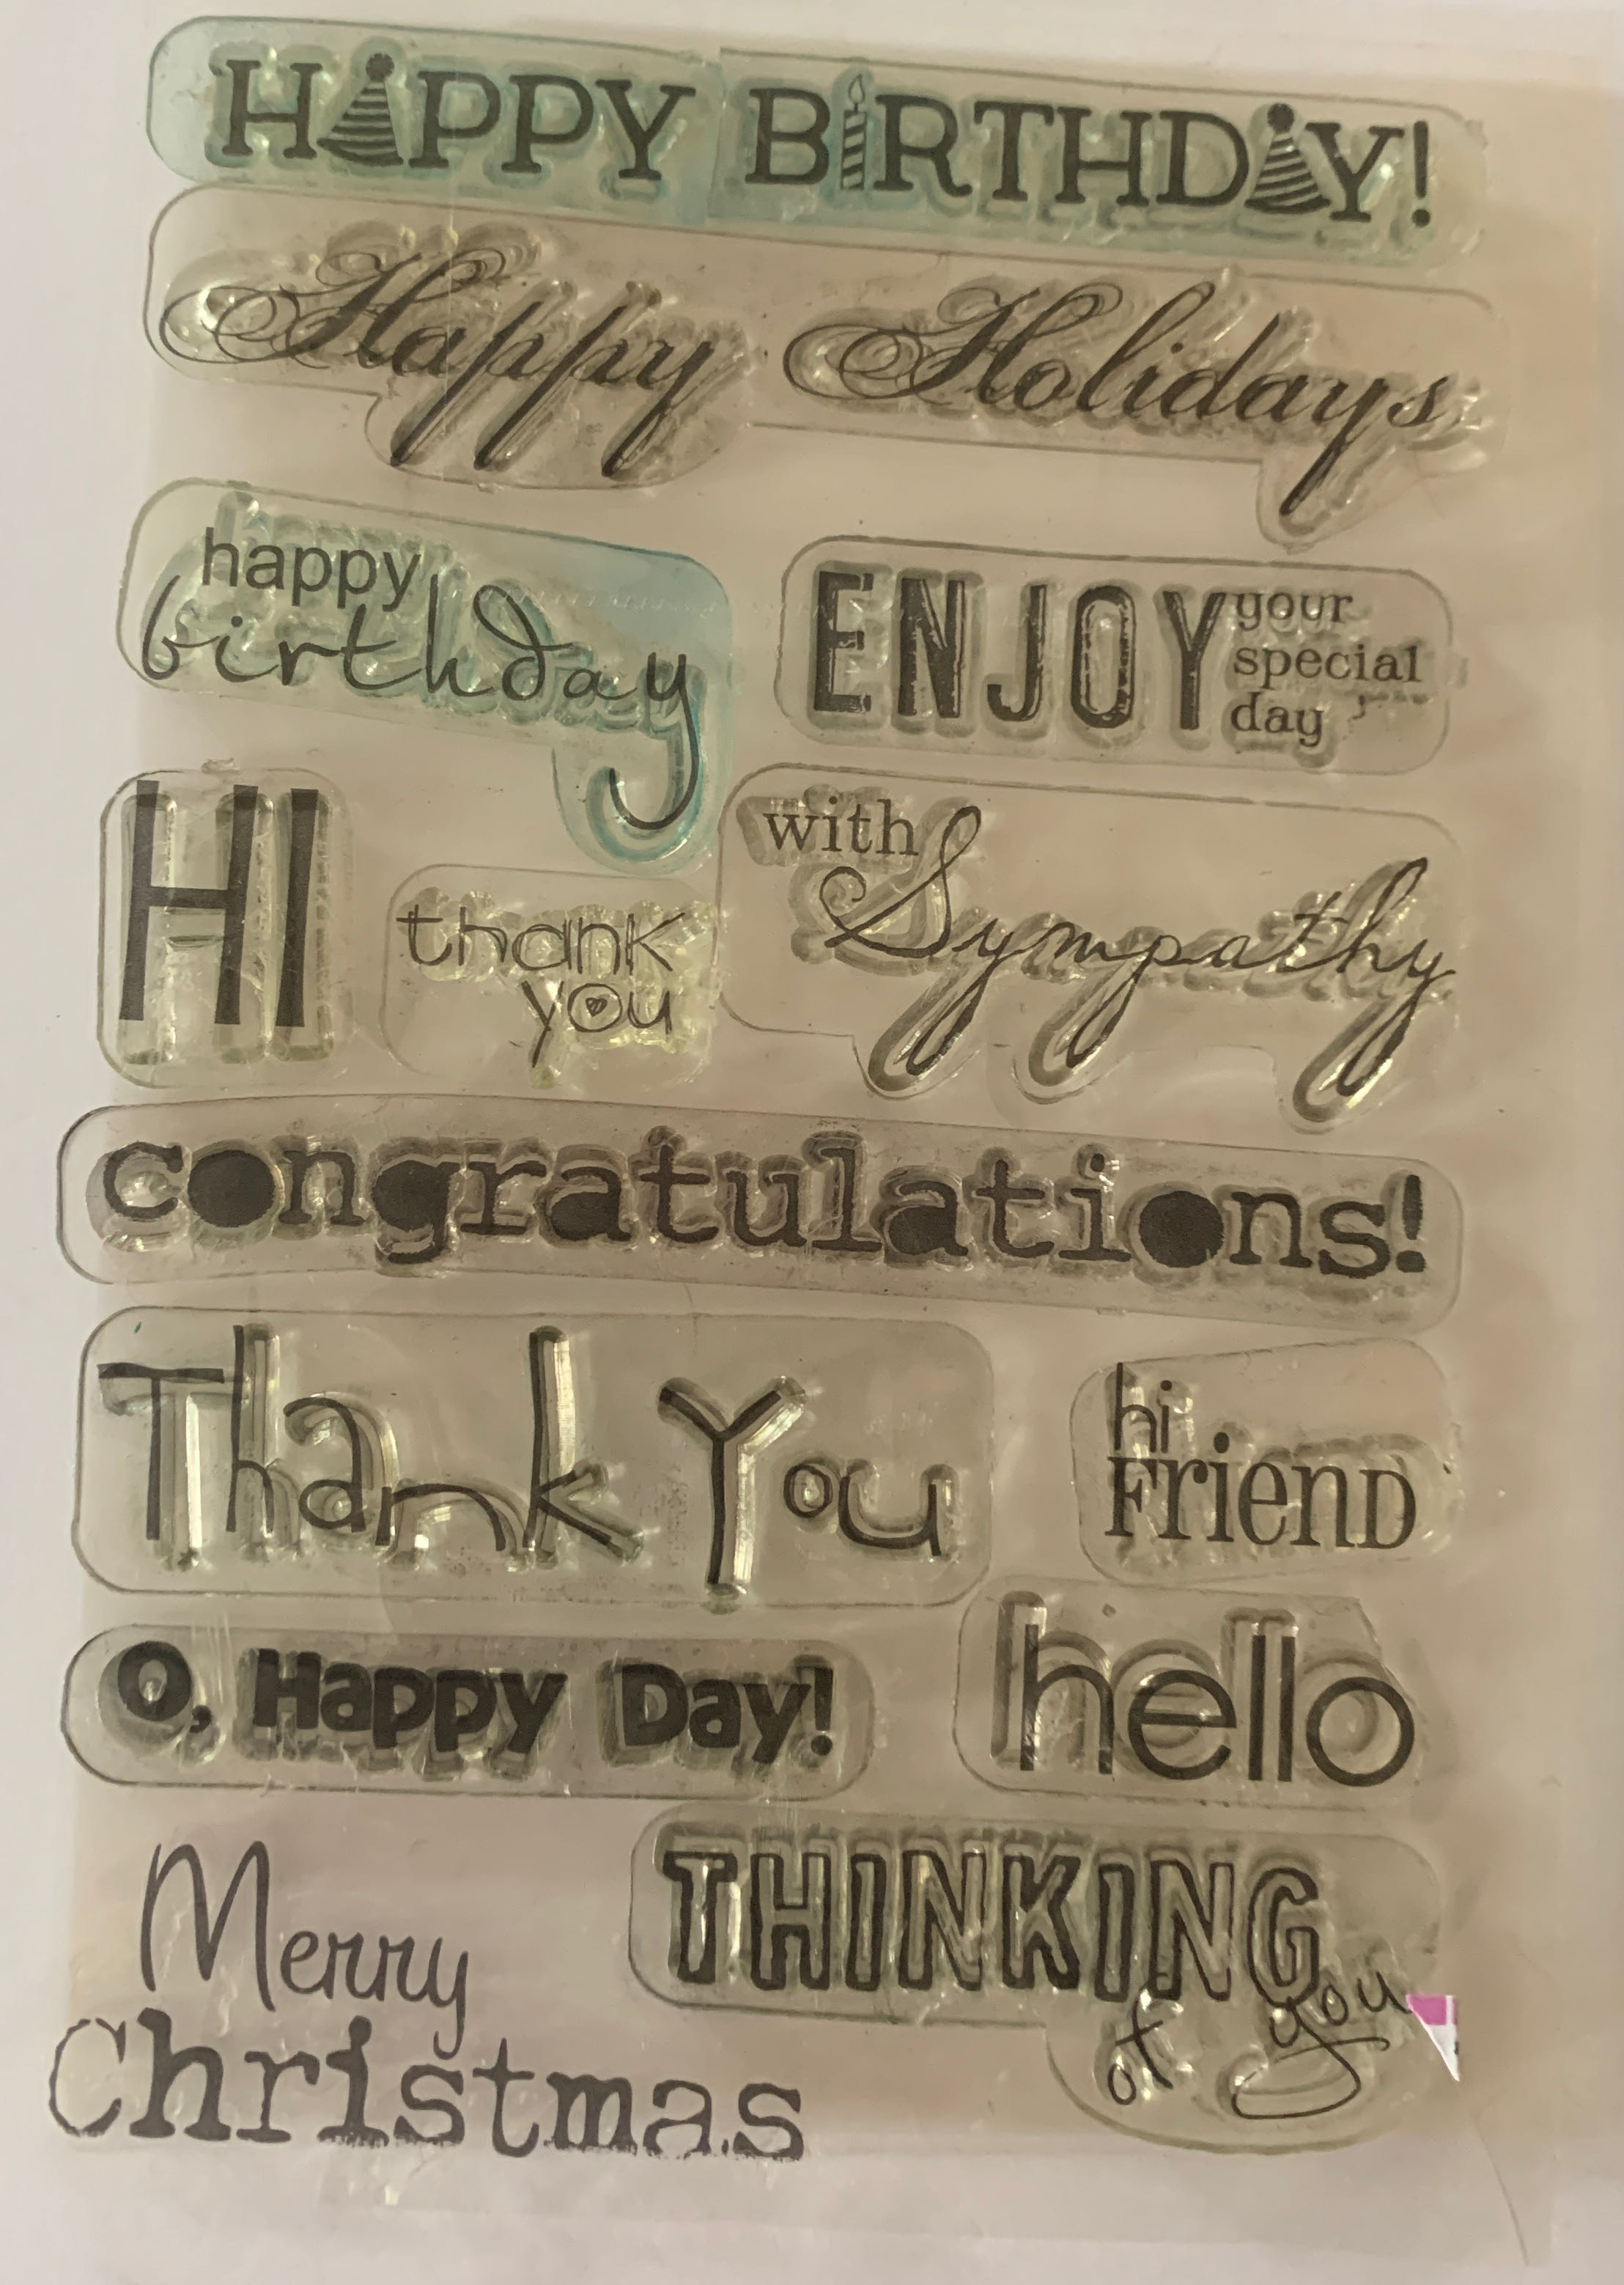 HAPPY BIRTHDAY!
Happy Holidays
happy
birthday
ENJOY
your
special
day
HI
thank
you
with
Sympathy
congratulations!
Thank You
hi
Friend
O, Happy Day!
hello
Merry
Christmas
THINKING
of you